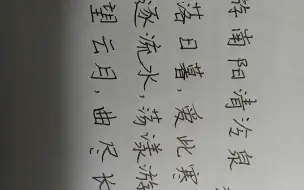 游南阳清泠泉
落日暮，爱此寒
逐流水，荡漾游
望云月，曲尽长